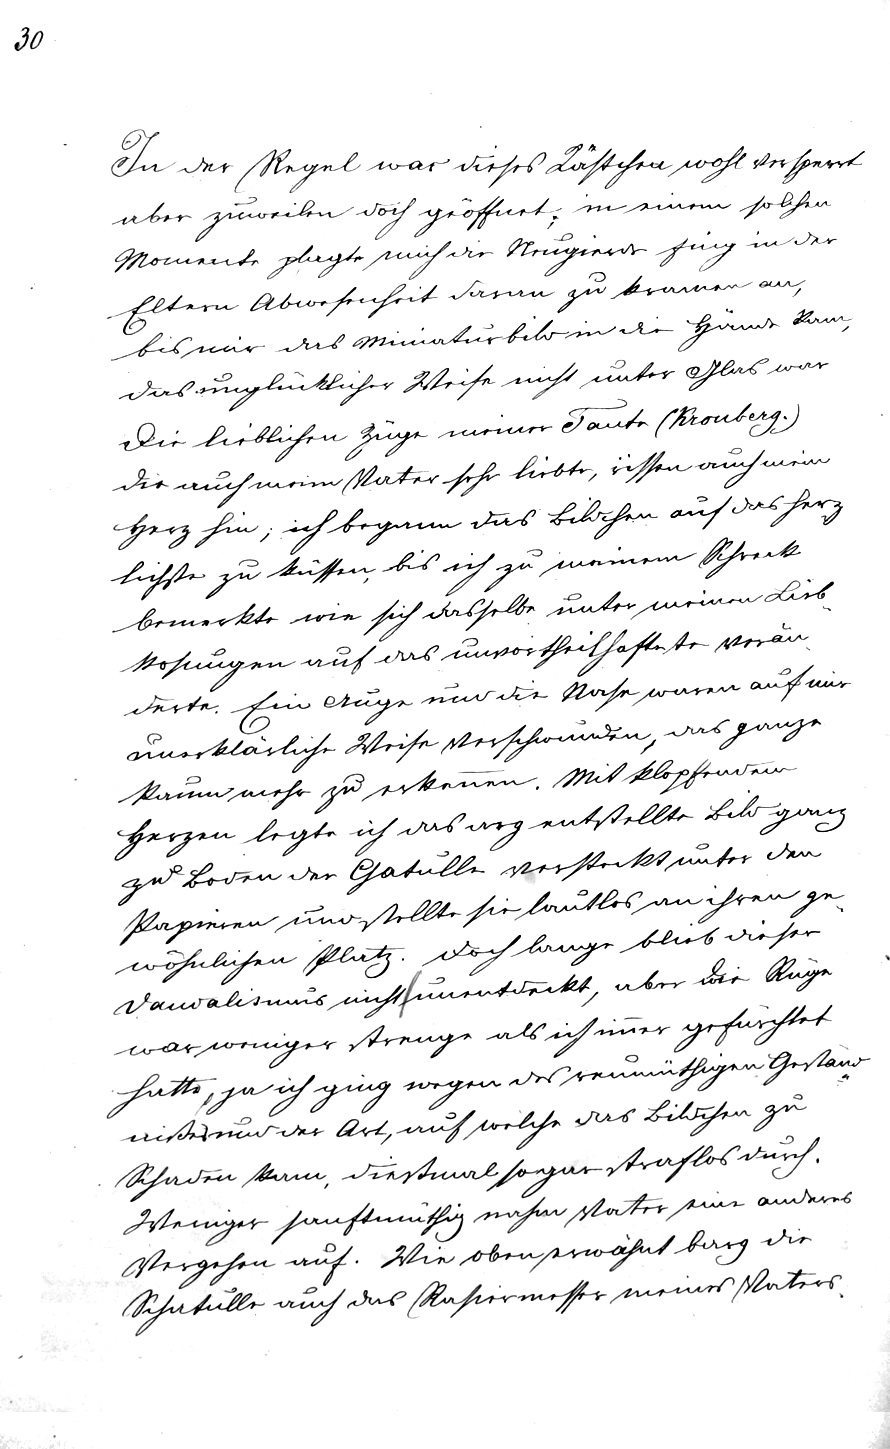 30
In der Regel war dieses Kästchen wohl versperrt
aber zuweilen doch geöffnet; in einem solchen
Momente plagte mich die Neugierde fing in der
Eltern Abwesenheit daran zu kramen an,
bis mir das Miniaturbild in die Hände kam,
das unglücklicher Weise nicht unter Glas war
Die lieblichen Züge meiner Tante (Kronberg.)
die auch mein Vater sehr liebte, rissen auch mein
Herz hin; ich begann das Bildchen auf das herz
lichste zu küssen, bis ich zu meinem Schreck
bemerkte wie sich dasselbe unter meinen Lieb-
kosungen auf das unvortheilhafteste verän-
derte. Ein Auge und die Nase waren auf mir
unerklärliche Weise verschwunden, das ganze
kaum mehr zu erkennen. Mit klopfendem
Herzen legte ich das arg entstellte Bild ganz
zu Boden der Chatulle versteckt unter den
Papieren und stellte sie lautlos an ihren ge-
wöhnlichen Platz. Doch lange blieb dieser
Vandalismus nicht unentdeckt, aber die Rüge
war weniger strenge als ich immer gefürchtet
hatte, ja ich ging wegen des reumüthigen Geständ-
nißes und der Art, auf welche das Bildchen zu
Schaden kam, diestmal sogar straflos durch.
Weniger sanftmüthig nahm Vater eine anderes
Vergehen auf. Wie oben erwähnt barg die
Schatulle auch das Rasiermesser meines Vaters.